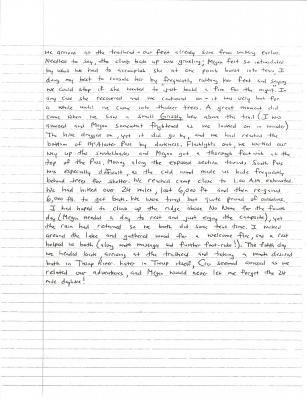 We arrived at the trailhead - our feet already sore from walking earlier.
Needless to say, the climb back up was grueling; Megan felt so intimidated
by what we had to accomplish she at one point burst into tears. I
doing my best to console her by frequently rubbing her feet and saying
we could stop if she wanted to just build a fire for the night. In
any case she recovered and we continued on - it was very hot for
a while until we came into thicker trees. A great moment did
come when we saw a small Grizzly bear above the trail (I was
amazed and Megan somewhat frightened as we looked on in wonder)
The hike dragged on, yet it did go by, and we had neared the
bottom of Pass by darkness. Flashlights out, we worked our
way up the switchbacks and Megan got a thorough foot-rub at the
top of the Pass. Moving along the exposed section towards South Pass
was especially difficult, as the cold wind made us hide frequently
behind trees for shelter. We reached camp close to 1 a.m. both exhausted.
We had hiked over 24 miles, lost 6,000 ft and then re-gained
6,000 ft. to get back. We were tired but quite proud of ourselves.
I had hoped to climb up the ridge above No Name for the fourth
day (Megan needed a day to rest and just enjoy the campsite), yet
the rain had returned so we both did some tent time. I walked
around the lake and gathered wood for a welcome fire, and a rest
helped us both (along with massage and further foot-rubs!). The fifth day
we headed back arriving at the trailhead and taking a much desired
bath in River. Later in itself, seemed amazed as we
related our adventures and Megan would never let me forget the 24
mile dayhike!